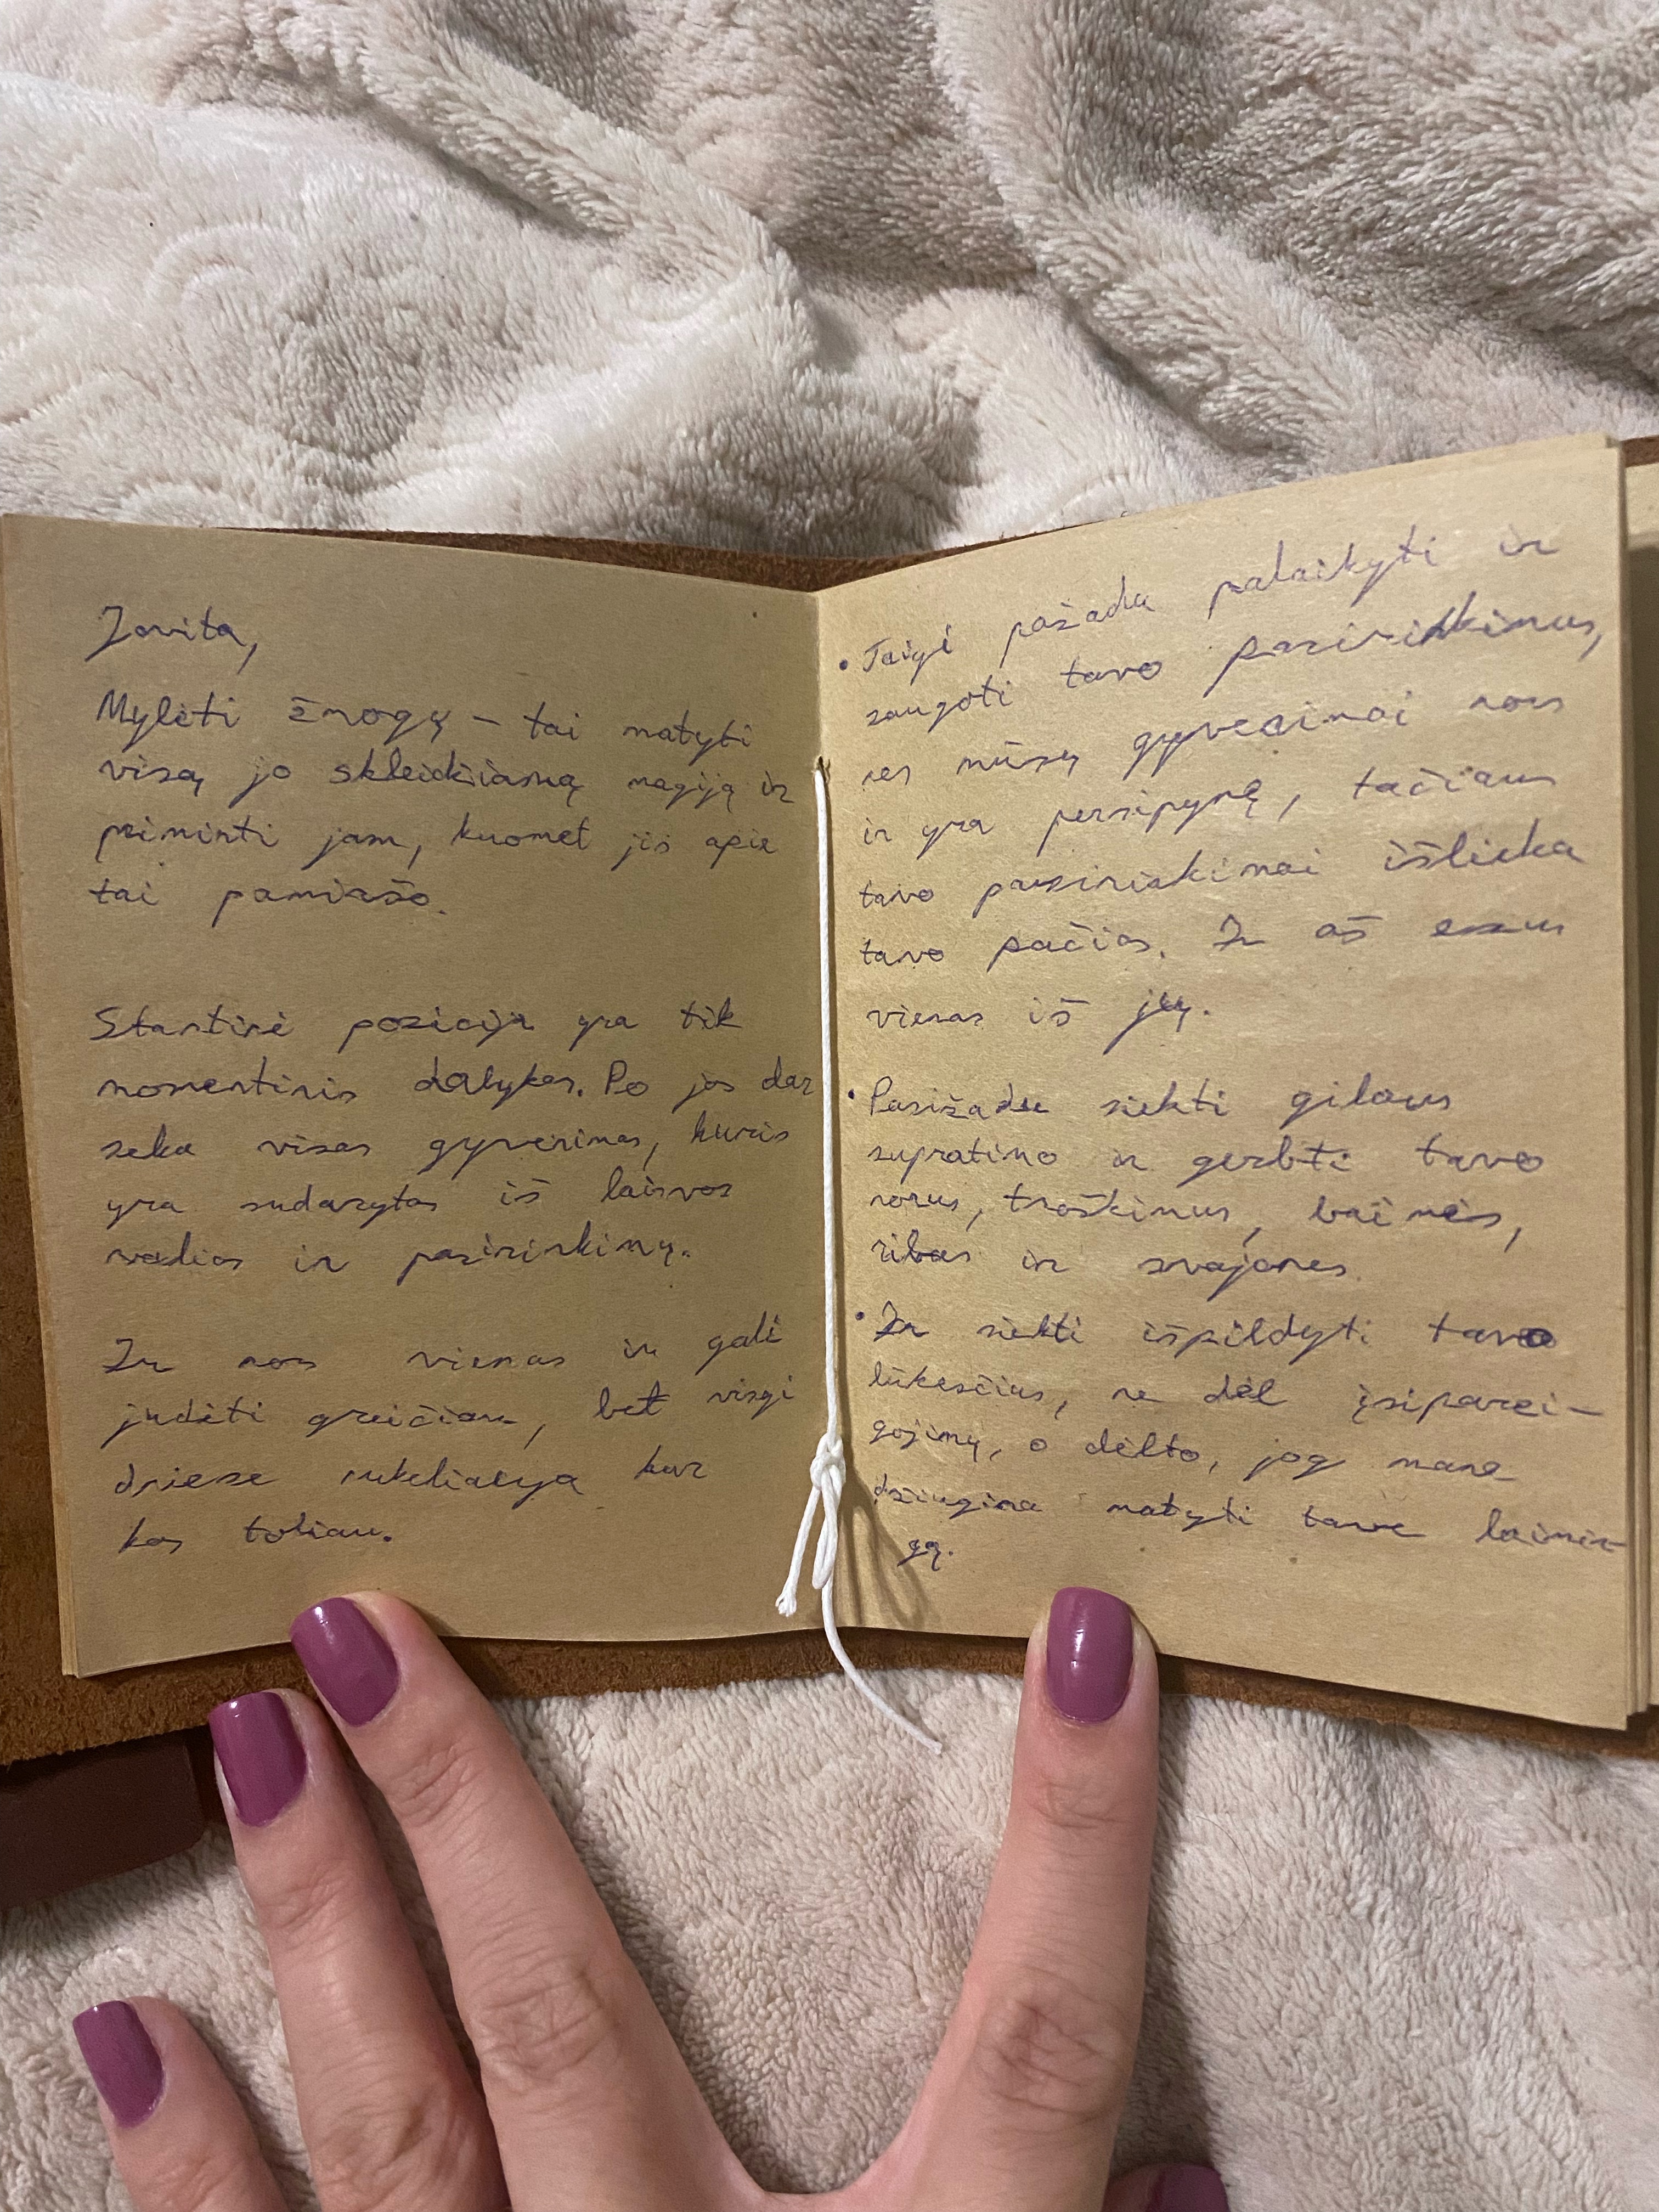 Jovita,
Mylėti žmogų – tai matyti
visą jo skleidžiamą magiją ir
priminti jam, kuomet jis apie
tai pamiršo.
Startinė pozicija yra tik
momentinis dalykas. Po jos dar
seka visas gyvenimas, kuris
yra sudarytas iš laisvos
valios ir pasirinkimų.
Ir nors vienas ir gali
judėti greičiau, bet visgi
dviese nukeliauja kur
kas toliau.
• Taigi pažadu palaikyti ir
saugoti tavo pasirinkimus,
nes mūsų gyvenimai nors
ir yra persipynę, tačiau
tavo pasirinkimai išlieka
tavo pačios. Ir aš esu
vienas iš jų.
• Pasižadu siekti gilaus
supratimo ir gerbti tavo
norus, troškimus, baimės,
ribas ir svajones.
• Ir siekti išpildyti tavo
lūkesčius, ne dėl įsiparei-
gojimų, o dėlto, jog mane
džiugina matyti tave laimin-
gą.